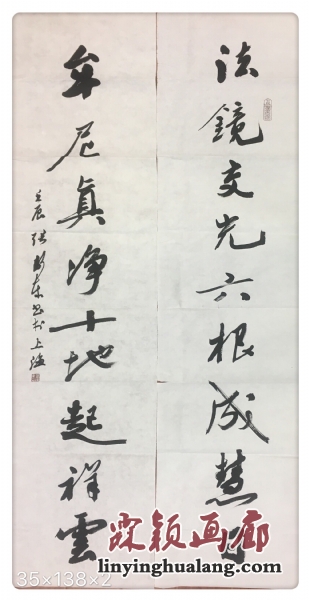 法鏡交光六根成慧
牟尼真淨十地起祥雲
壬辰 張 書於上海
霖颖画廊
linyinghualang.com
35×138×2